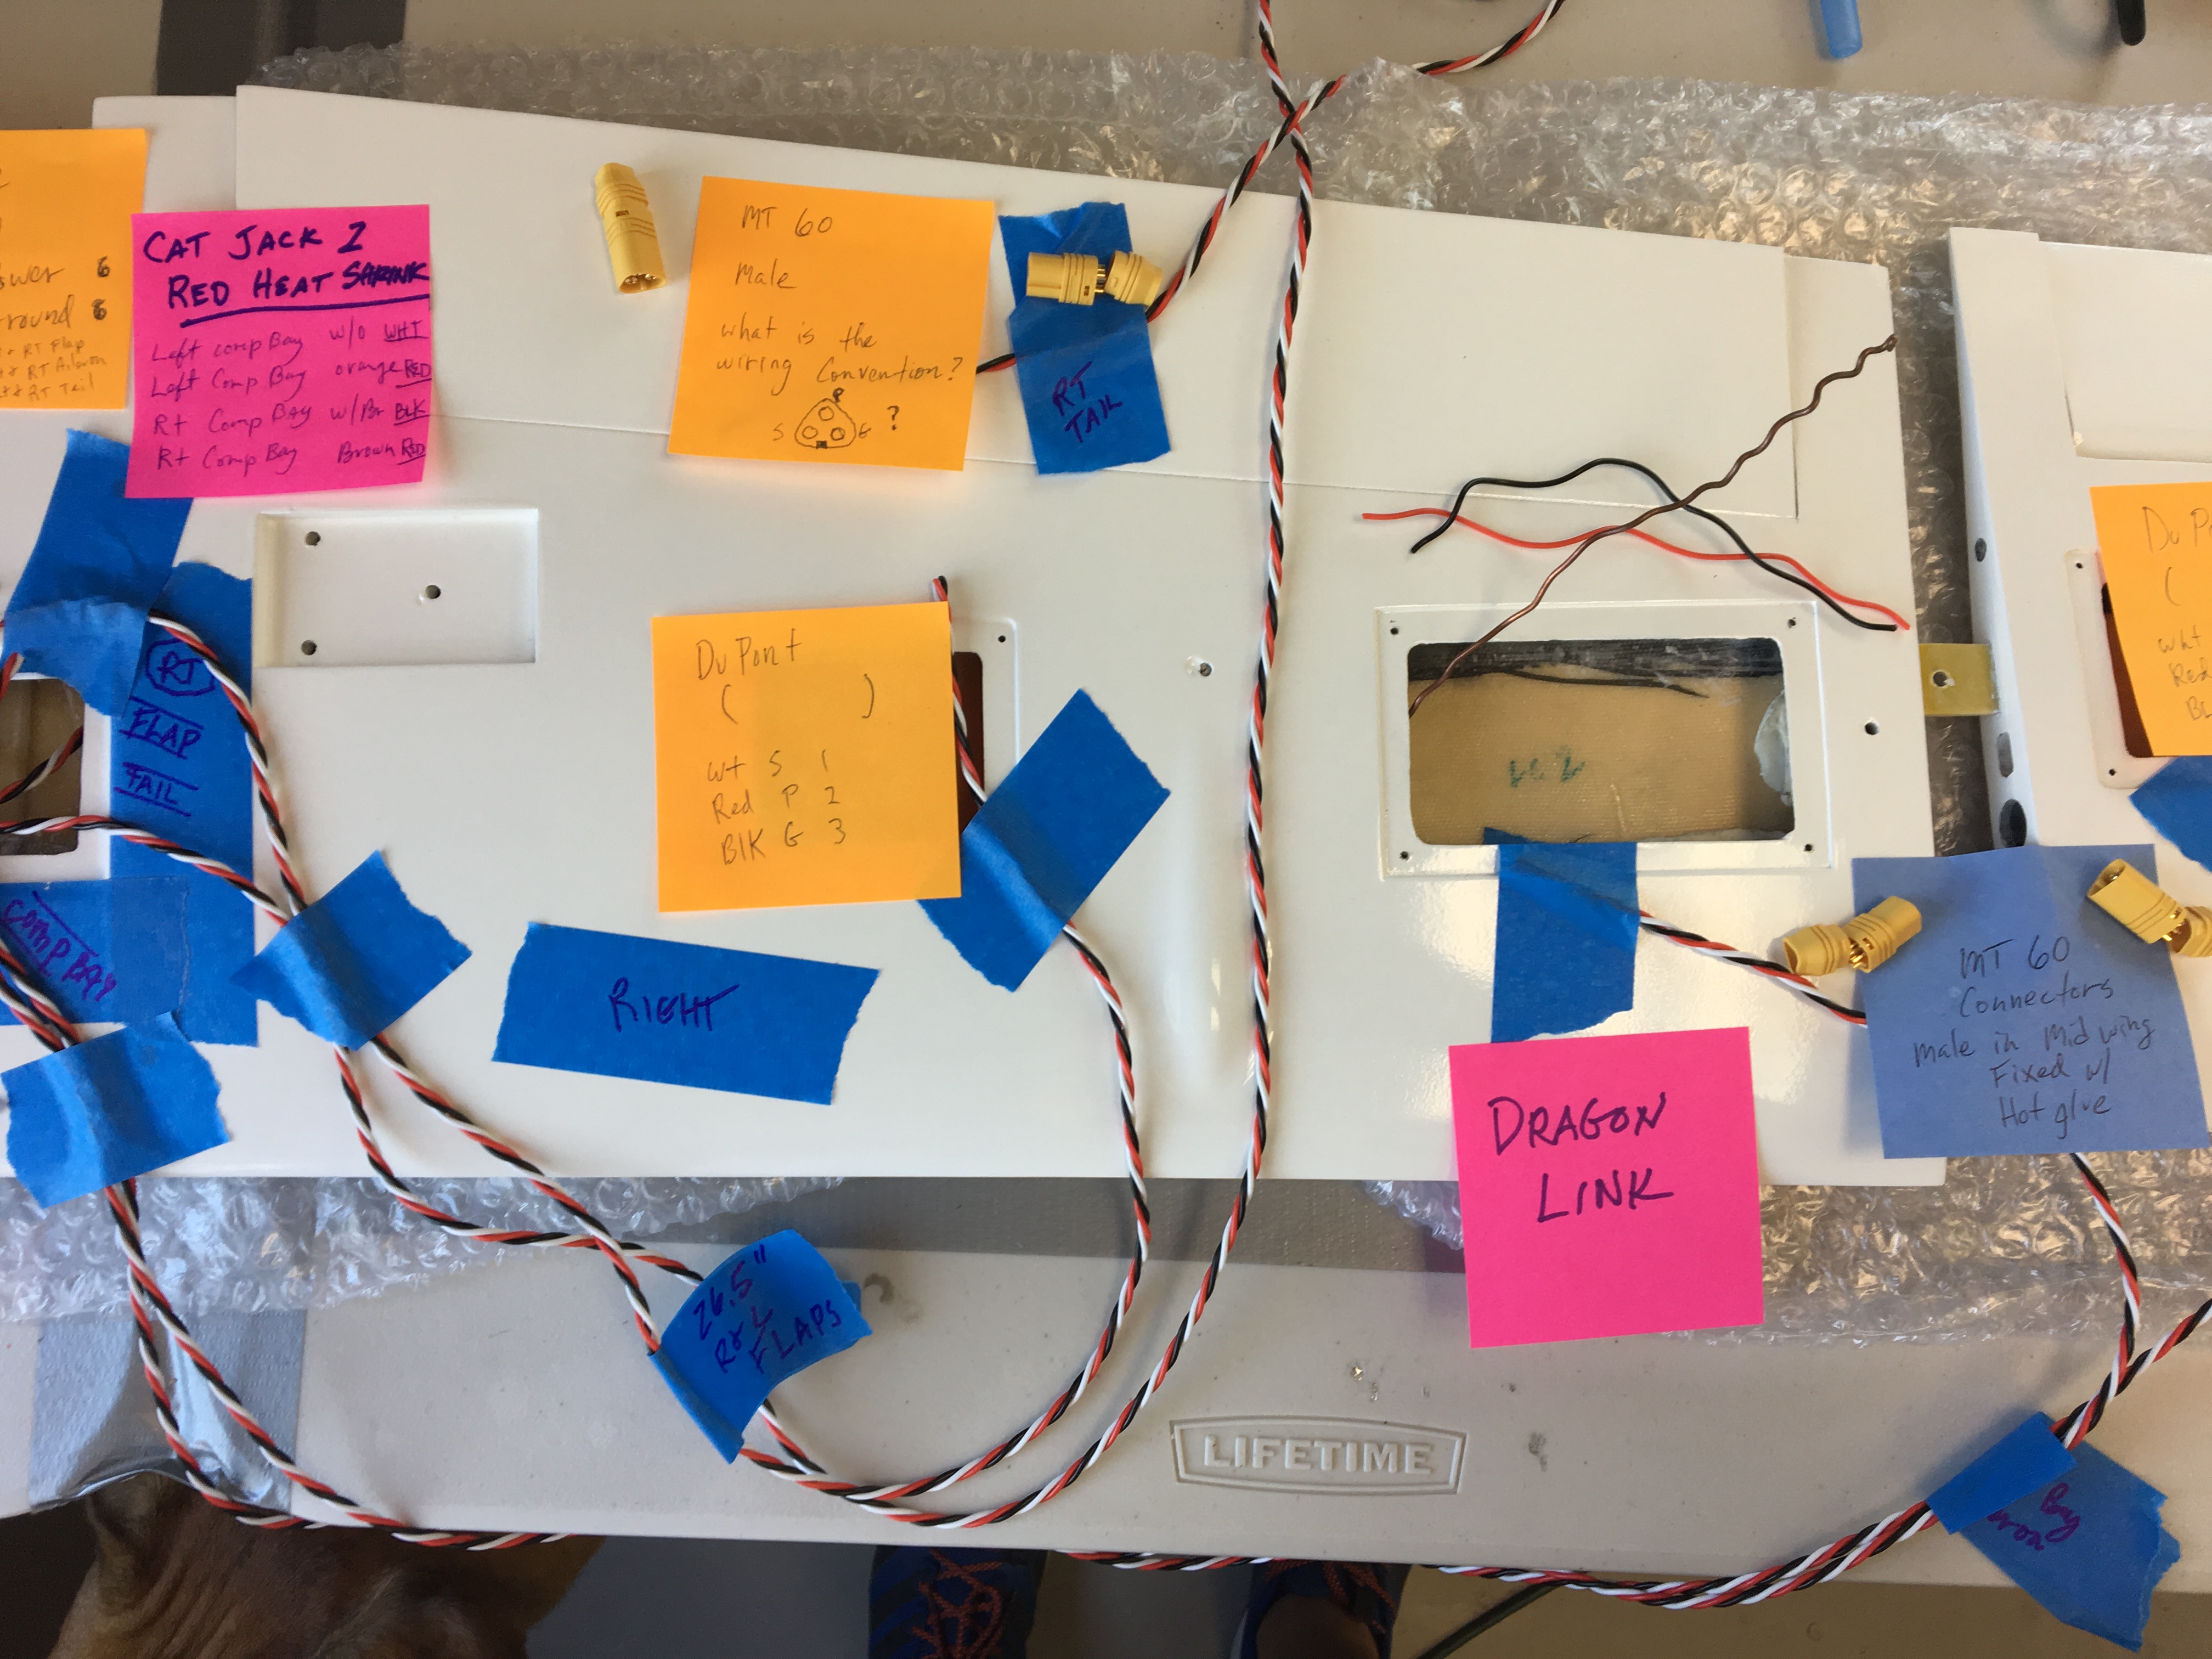 ower 6
round 6
RT Flap
RT Aileron
RT Tail
CAT JACK 2
RED HEAT SHRINK
Left comp Bay w/o WHT
Left Comp Bay orange RED
Rt Comp BAY w/Br BLK
Rt Comp Bay Brown RED
MT 60
Male
what is the
wiring Convention?
P
S G ?
RT
TAIL
RT
FLAP
TAIL
COMP BAY
DuPont
( )
Wt S 1
Red P 2
BlK G 3
RIGHT
26.5"
R & L
FLAPS
DRAGON
LINK
MT 60
Connectors
Male in Mid wing
Fixed w/
Hot glue
Du P
(
Wht
Red
BL
LIFETIME